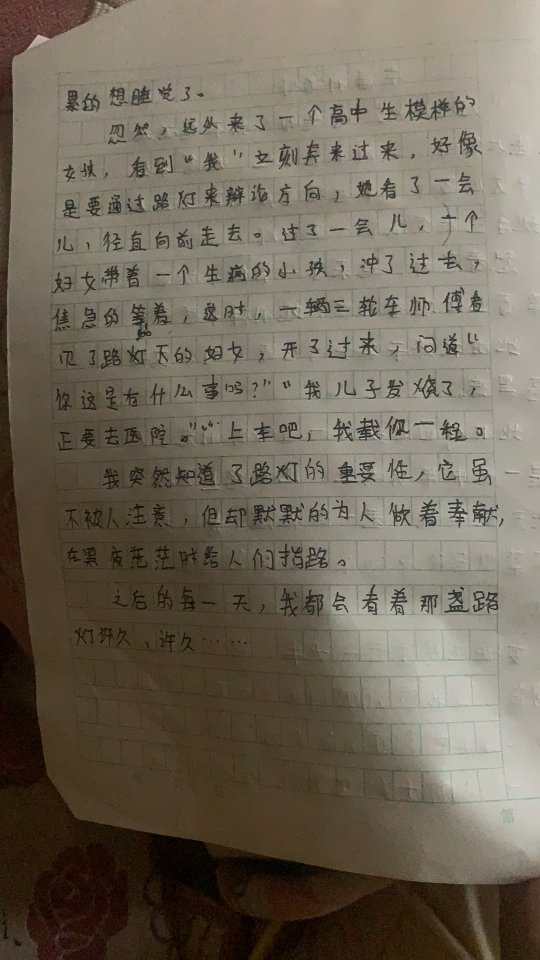 累的想睡觉了。
忽然，远处来了一个高中生模样的
女孩，看到“我”立刻奔来过来，好像
是要通过路灯来辩论方向，她看了一会
儿，径直向前走去。过了一会儿，一个
妇女带着一个生病的小孩，冲了过去，
焦急的等着，这时，一辆三轮车师傅看
见了路灯下的妇女，开了过来，问道“
你这是有什么事吗？”“我儿子发烧了，
正要去医院。”“上车吧，我载你一程。
我突然知道了路灯的重要性，它虽
不被人注意，但却默默的为人做着奉献，
在黑夜茫茫时给人们指路。
之后的每一天，我都会看着那盏路
灯许久，许久……
第